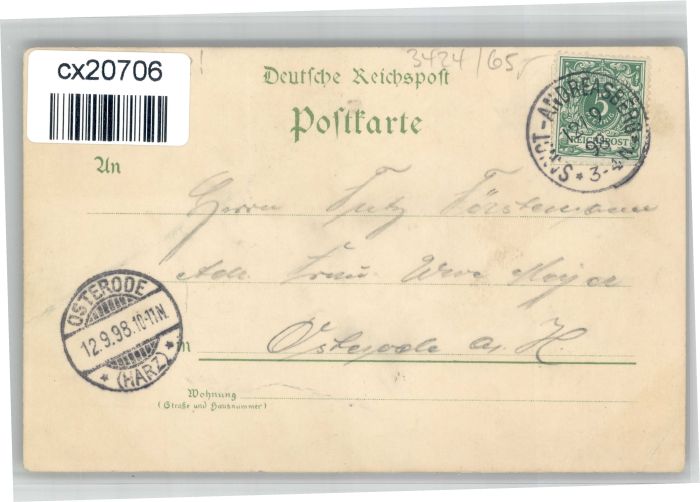 cx20706
3424/65,-
Deutsche Reichspost
Postkarte
SANCT-ANDREASBERG
12 9
98
3-4 N
5
REICHSPOST
An
Herrn Fritz Förstemann
Adr. Frau Wwe Meyer
in Osterode a. H
OSTERODE
12.9.98.10-11N.
* (HARZ) *
Wohnung
(Straße und Hausnummer)